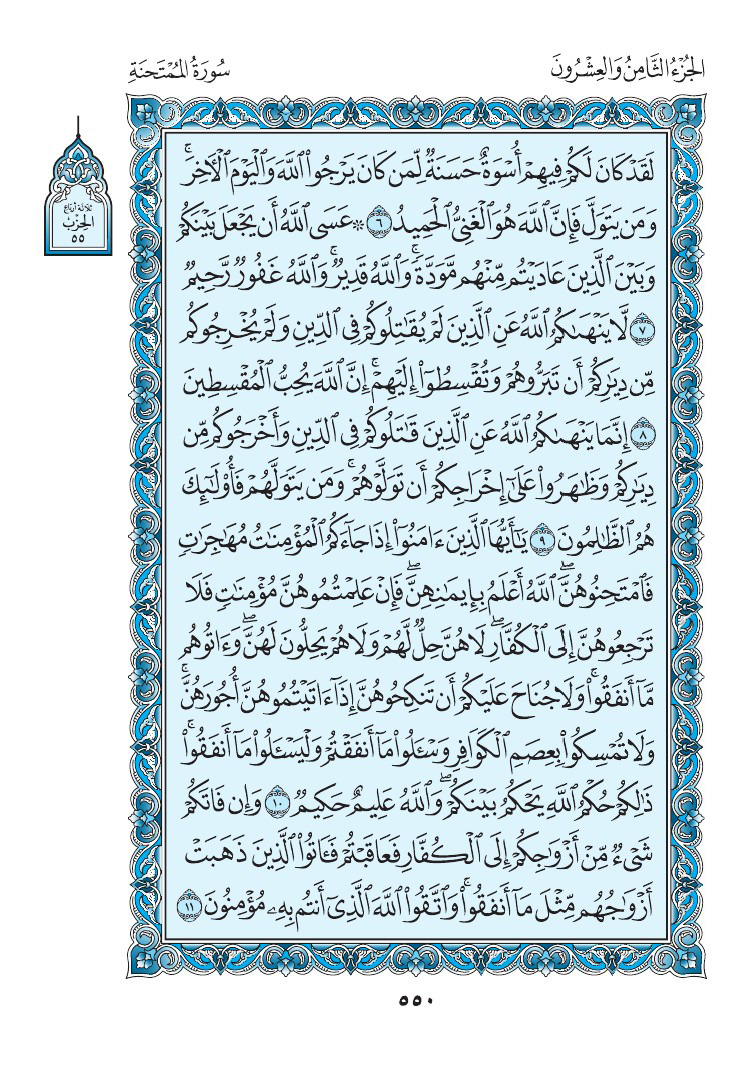 الجُزْءُ الثَّامِنُ وَالعِشْرُونَ
سُورَةُ المُمْتَحنَةِ
لَقَدْ كَانَ لَكُمْ فِيهِمْ أُسْوَةٌ حَسَنَةٌ لِّمَن كَانَ يَرْجُوا۟ ٱللَّهَ وَٱلْيَوْمَ ٱلْـَٔاخِرَ ۚ
وَمَن يَتَوَلَّ فَإِنَّ ٱللَّهَ هُوَ ٱلْغَنِىُّ ٱلْحَمِيدُ ٦ ۞ عَسَى ٱللَّهُ أَن يَجْعَلَ بَيْنَكُمْ
وَبَيْنَ ٱلَّذِينَ عَادَيْتُم مِّنْهُم مَّوَدَّةً ۚ وَٱللَّهُ قَدِيرٌ ۚ وَٱللَّهُ غَفُورٌ رَّحِيمٌ
٧ لَّا يَنْهَىٰكُمُ ٱللَّهُ عَنِ ٱلَّذِينَ لَمْ يُقَـٰتِلُوكُمْ فِى ٱلدِّينِ وَلَمْ يُخْرِجُوكُم
مِّن دِيَـٰرِكُمْ أَن تَبَرُّوهُمْ وَتُقْسِطُوٓا۟ إِلَيْهِمْ ۚ إِنَّ ٱللَّهَ يُحِبُّ ٱلْمُقْسِطِينَ
٨ إِنَّمَا يَنْهَىٰكُمُ ٱللَّهُ عَنِ ٱلَّذِينَ قَـٰتَلُوكُمْ فِى ٱلدِّينِ وَأَخْرَجُوكُم مِّن
دِيَـٰرِكُمْ وَظَـٰهَرُوا۟ عَلَىٰٓ إِخْرَاجِكُمْ أَن تَوَلَّوْهُمْ ۚ وَمَن يَتَوَلَّهُمْ فَأُو۟لَـٰٓئِكَ
هُمُ ٱلظَّـٰلِمُونَ ٩ يَـٰٓأَيُّهَا ٱلَّذِينَ ءَامَنُوٓا۟ إِذَا جَآءَكُمُ ٱلْمُؤْمِنَـٰتُ مُهَـٰجِرَٰتٍ
فَٱمْتَحِنُوهُنَّ ۖ ٱللَّهُ أَعْلَمُ بِإِيمَـٰنِهِنَّ ۖ فَإِنْ عَلِمْتُمُوهُنَّ مُؤْمِنَـٰتٍ فَلَا
تَرْجِعُوهُنَّ إِلَى ٱلْكُفَّارِ ۖ لَا هُنَّ حِلٌّ لَّهُمْ وَلَا هُمْ يَحِلُّونَ لَهُنَّ ۖ وَءَاتُوهُم
مَّآ أَنفَقُوا۟ ۚ وَلَا جُنَاحَ عَلَيْكُمْ أَن تَنكِحُوهُنَّ إِذَآ ءَاتَيْتُمُوهُنَّ أُجُورَهُنَّ ۚ
وَلَا تُمْسِكُوا۟ بِعِصَمِ ٱلْكَوَافِرِ وَسْـَٔلُوا۟ مَآ أَنفَقْتُمْ وَلْيَسْـَٔلُوا۟ مَآ أَنفَقُوا۟ ۚ
ذَٰلِكُمْ حُكْمُ ٱللَّهِ يَحْكُمُ بَيْنَكُمْ ۖ وَٱللَّهُ عَلِيمٌ حَكِيمٌ ١٠ وَإِن فَاتَكُمْ
شَىْءٌ مِّنْ أَزْوَٰجِكُمْ إِلَى ٱلْكُفَّارِ فَعَاقَبْتُمْ فَـَٔاتُوا۟ ٱلَّذِينَ ذَهَبَتْ
أَزْوَٰجُهُم مِّثْلَ مَآ أَنفَقُوا۟ ۚ وَٱتَّقُوا۟ ٱللَّهَ ٱلَّذِىٓ أَنتُم بِهِۦ مُؤْمِنُونَ ١١
ثلاثة أرباع
الحِزْب
٥٥
٥٥٠